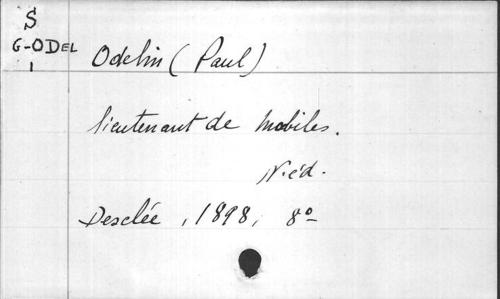 S
G-ODEL
1
Odelin (Paul)
lieutenant de mobiles.
N. éd.
Desclée, 1898, 8º